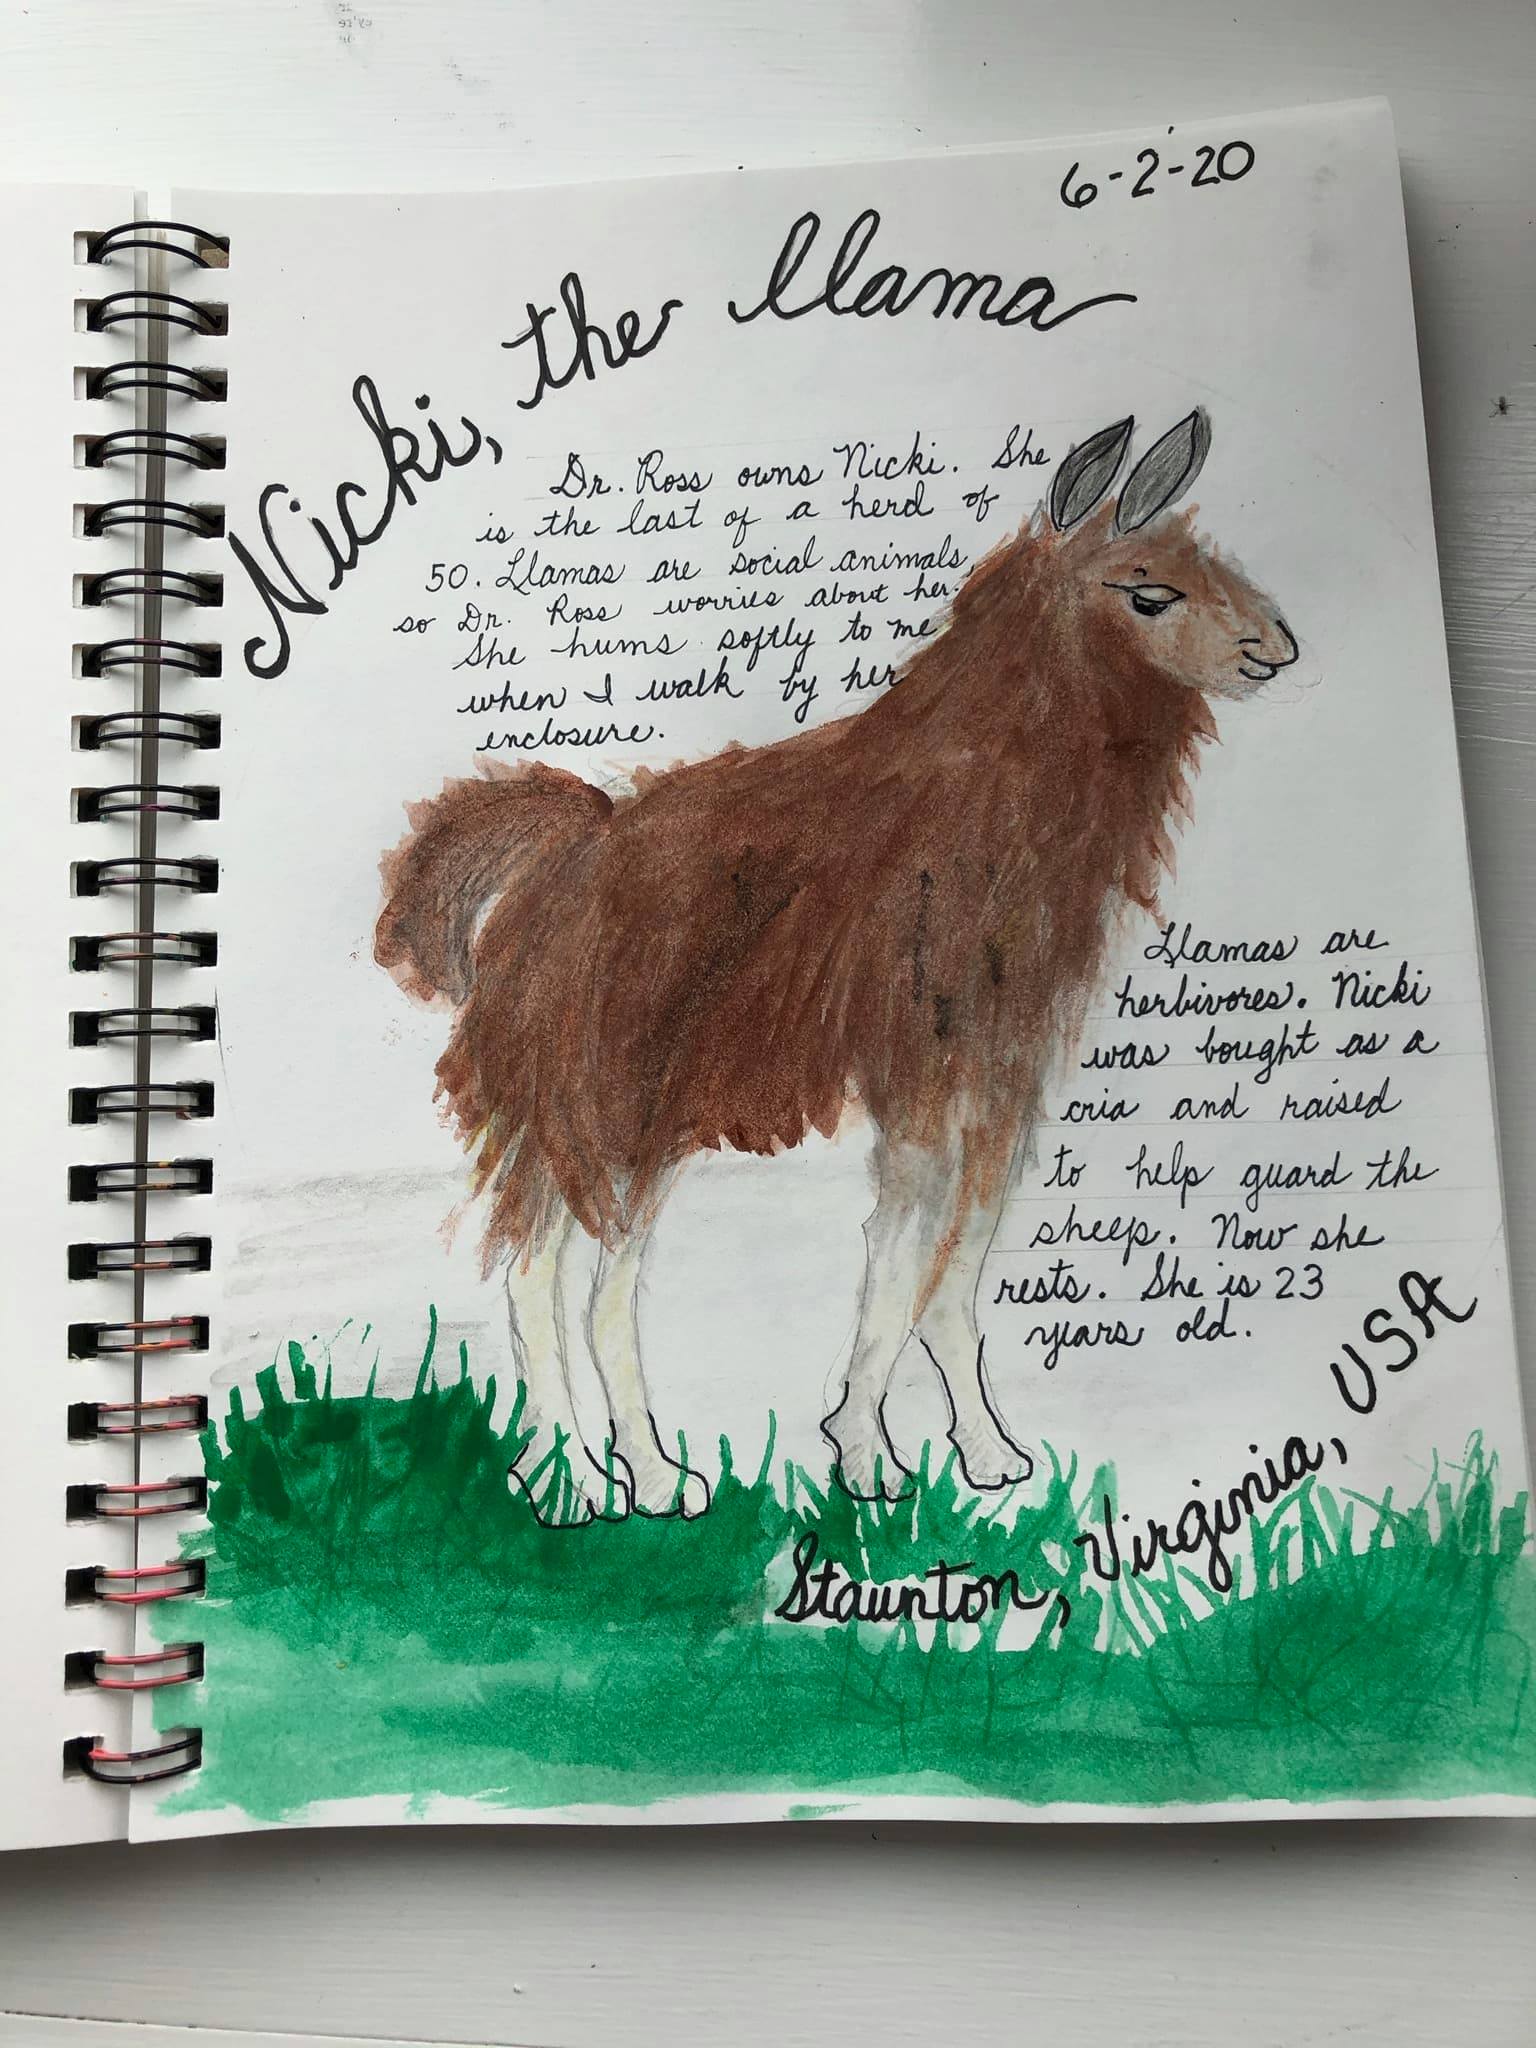 6-2-20
Nicki, the llama
Dr. Ross owns Nicki. She
is the last of a herd of
50. Llamas are social animals,
so Dr. Ross worries about her.
She hums softly to me
when I walk by her
enclosure.
Llamas are
herbivores. Nicki
was bought as a
cria and raised
to help guard the
sheep. Now she
rests. She is 23
years old.
Staunton, Virginia, USA